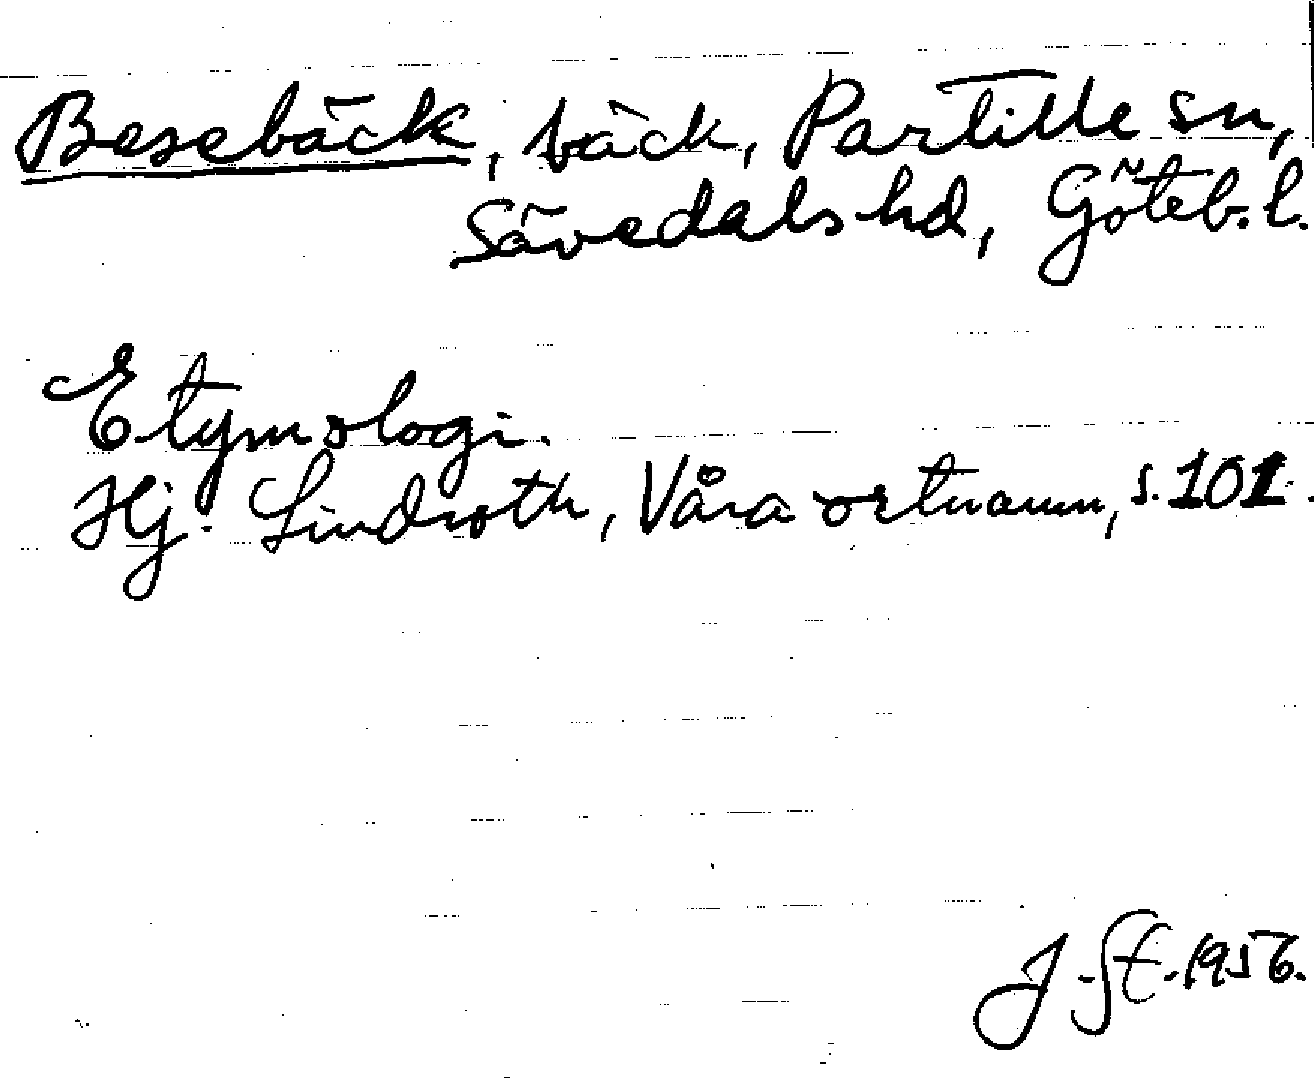 Besebäck, bäck, Partille sn,
Sävedals hd, Göteb. l.
Etymologi.
Hj. Lindroth, Våra ortnamn, s. 101.
J. St. 1956.